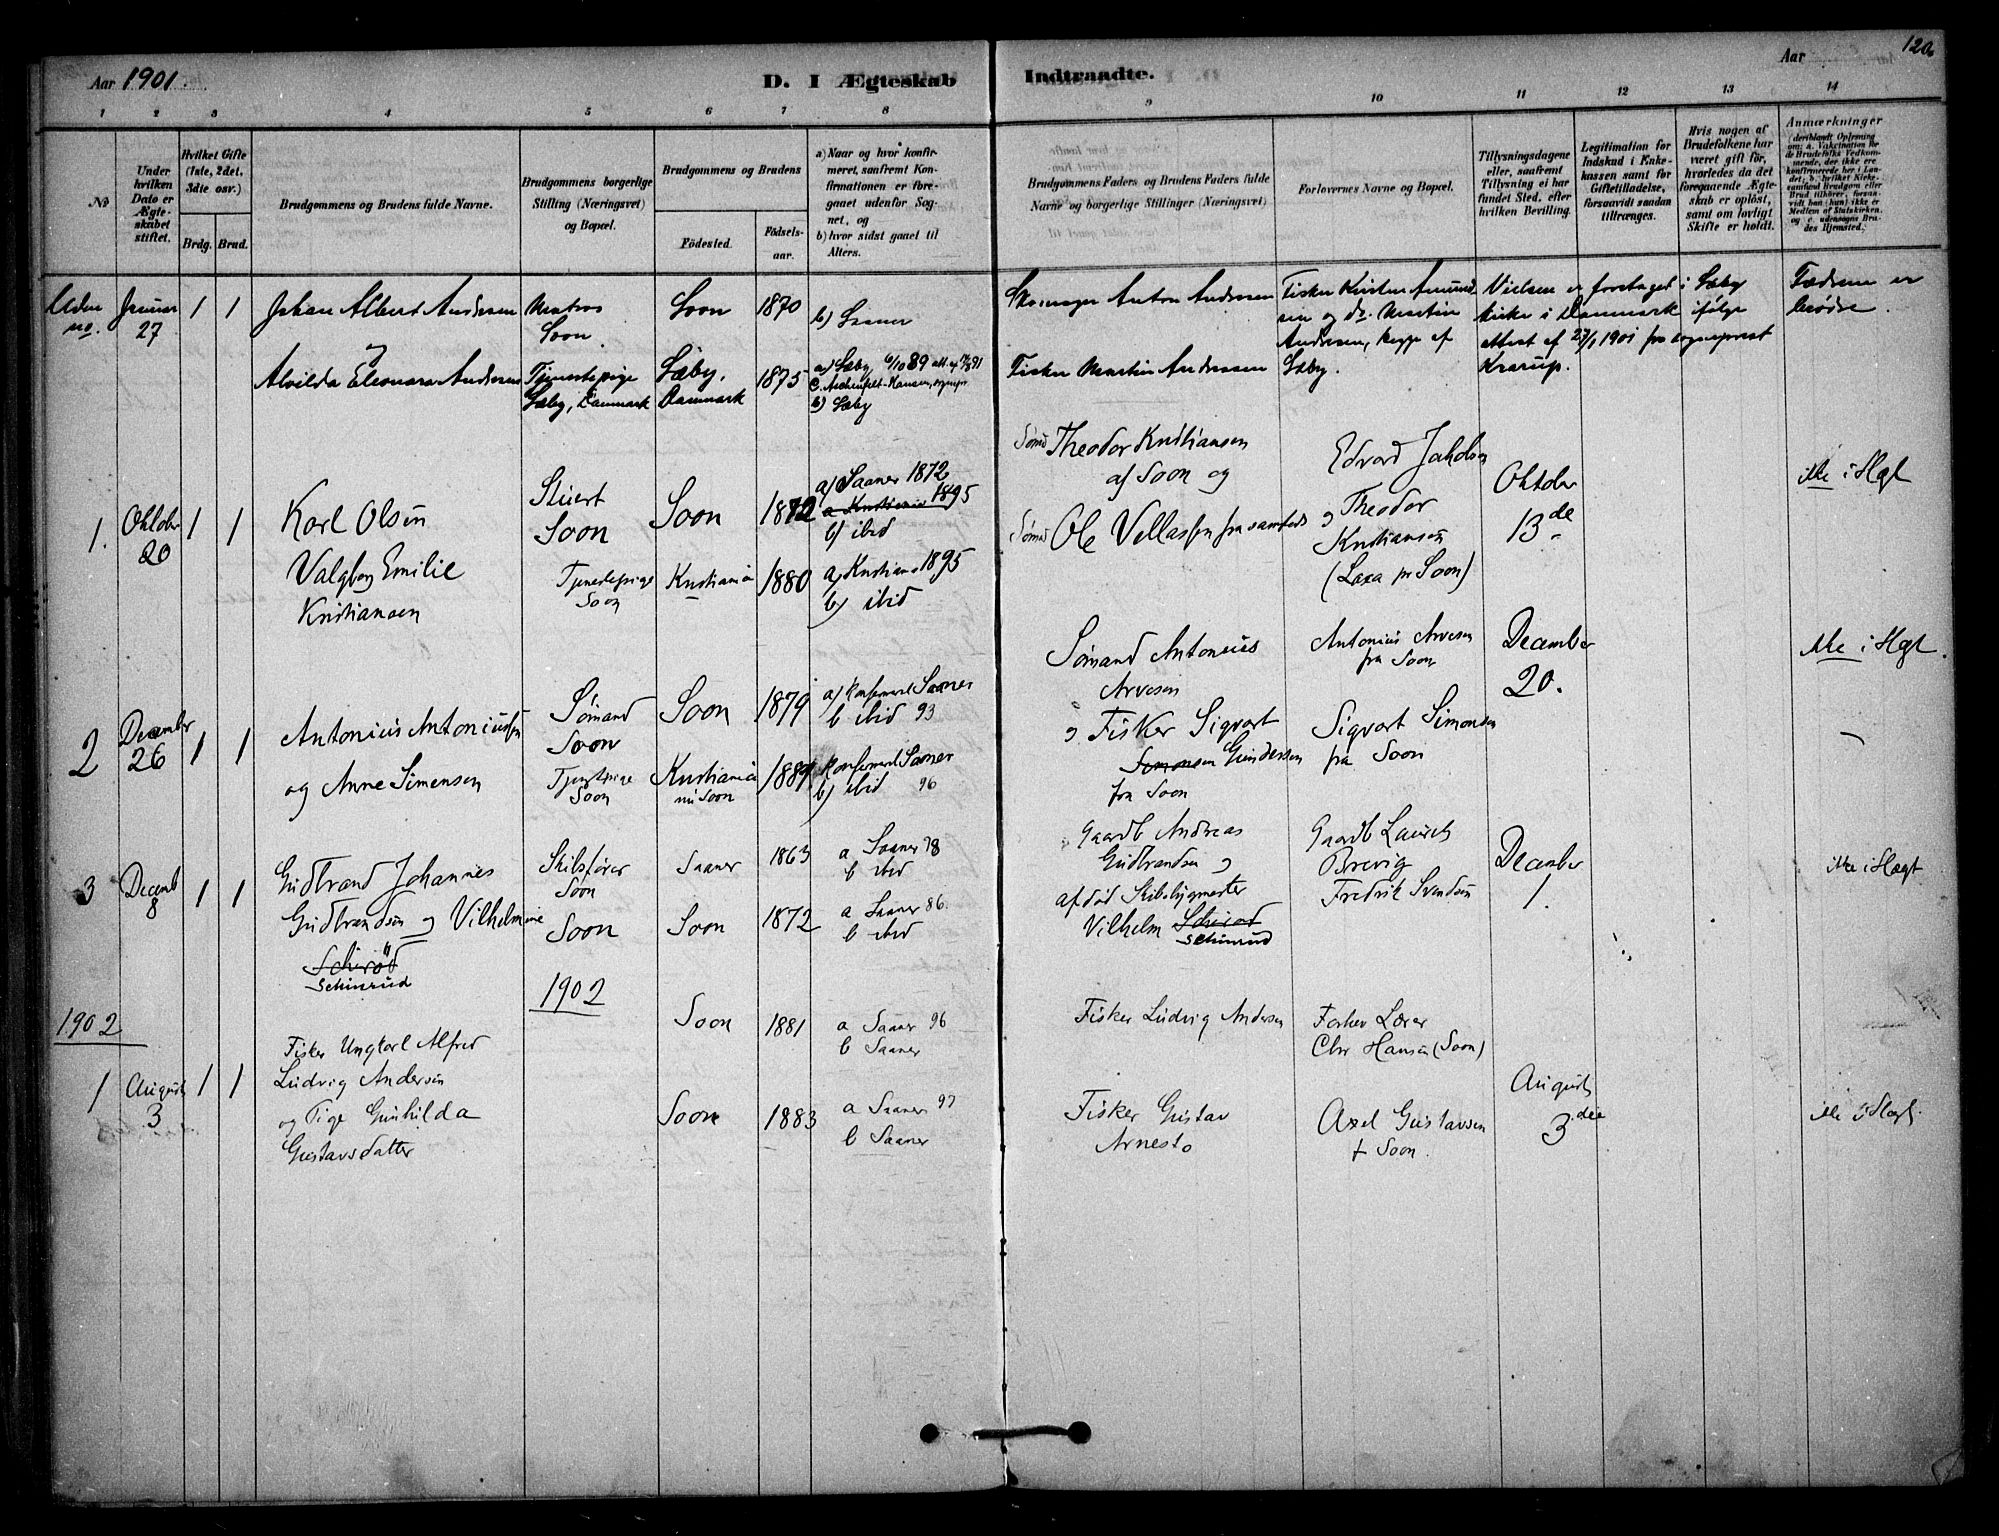 Aar 1901.
D. I Ægteskab
Indtraadte.
Aar
120.
1 2 3 4 5 6 7 8 9 10 11 12 13 14
No
Under hvilken Dato er Ægteskabet stiftet.
Hvilket Gifte (1ste, 2det, 3die osv.)
Brdg. Brud.
Brudgommens og Brudens fulde Navne.
Brudgommens borgerlige Stilling (Næringsvei) og Bopæl.
Brudgommens og Brudens
Födested.
Födselsaar.
a) Naar og hvor konfirmeret, samt om Konfirmationen er foregaaet udenfor Sognet, og
b) hvor sidst gaaet til Alters.
Brudgommens Faders og Brudens Faders fulde Navne og borgerlige Stillinger (Næringsvei)
Forlovernes Navne og Bopæl.
Tillysningsdagene eller, saafremt Tillysning ei har fundet Sted, efter hvilken Bevilling.
Legitimation for Indskud i Enkekassen samt for Giftetilladelse, forsaavidt saadan tiltrænges.
Hvis nogen af Brudefolkene har været gift før, hvorledes da det foregaaende Ægteskab er opløst, samt om lovligt Skifte er holdt.
Anmærkninger
Uden no.
Januar 27
1 1
Johan Albert Andersen
Matros
Soon.
Soon
1870
b) Saaner
Anton Andersen
Fisker Kristen Amundsen og do. Martin Andersen, begge af Sæby.
Vielsen er foretaget i Sæby kirke i Danmark ifølge attest af 27/1 1901 fra sogneprest Krarup.
Fædrene er brødre.
og
Alvilda Eleonora Andersen
Tjenestepige
Sæby, Danmark
Sæby,
Danmark
1875
a) Sæby 6/10 89
b) Sæby
Fisker Martin Andersen
1.
Oktober
20
1 1
Karl Olsen
Stuert
Soon
Soon
1872
a) Saaner 1872
a Kristiania 1895
b) ibid
Sømd Theodor Kristiansen
af Soon og
Edvard Jakobsen
Oktober
13de
ikke i Slægt
Valgborg Emilie
Kristiansen
Tjenestepige
Soon
Kristiania
1880
a) Kristiania 1895
b) ibid
Sømd Ole
og Theodor
Kristiansen
2
December
26
1 1
Antonius Antoniussen
Sømand
Soon
Soon
1879
a) konfirmert Saaner
b ibid 93
Sømand Antonius
Arvesen
Antonius Arvesen
fra Soon
December
20.
ikke i Slægt.
og Anne Simensen
Tjenstpige
Soon
Kristiania
nu Soon
1881
konfirmert Saaner
b) ibid 96
og Fisker Sigvart
Simonsen Gundersen
fra Soon
Sigvart Simonsen
fra Soon
3
Decemb
8
1 1
Gudbrand Johannes
Gudbrandsen og Vilhelmine
Schirød
Schinrud
Skibsfører
Soon
Saaner
1863
a Saaner 78
b ibid
Gaardb Andreas
Gudbrandsen og
Gaardb Laurits
Brevig
Fredrik Svendsen
December
1.
ikke i Slægt
Soon
Soon
1872
a Saaner 86.
b ibid
afdød Skibsbygmester
Vilhelm Schirød
Schinrud
1902
1902
1
August
3
1 1
Fisker Ungkarl Alfred
Ludvig Andersen
Soon
1881
a Saaner 96
b Saaner
Fisker Ludvig Andersen
Forhev Lærer
Chr Hansen (Soon)
August
3die
ikke i Slægt.
og Pige Gunhilda
Gustavsdatter
Soon
1883
a Saaner 97
b Saaner
Fisker Gustav
Arnesto
Axel Gustavsen
f Soon.